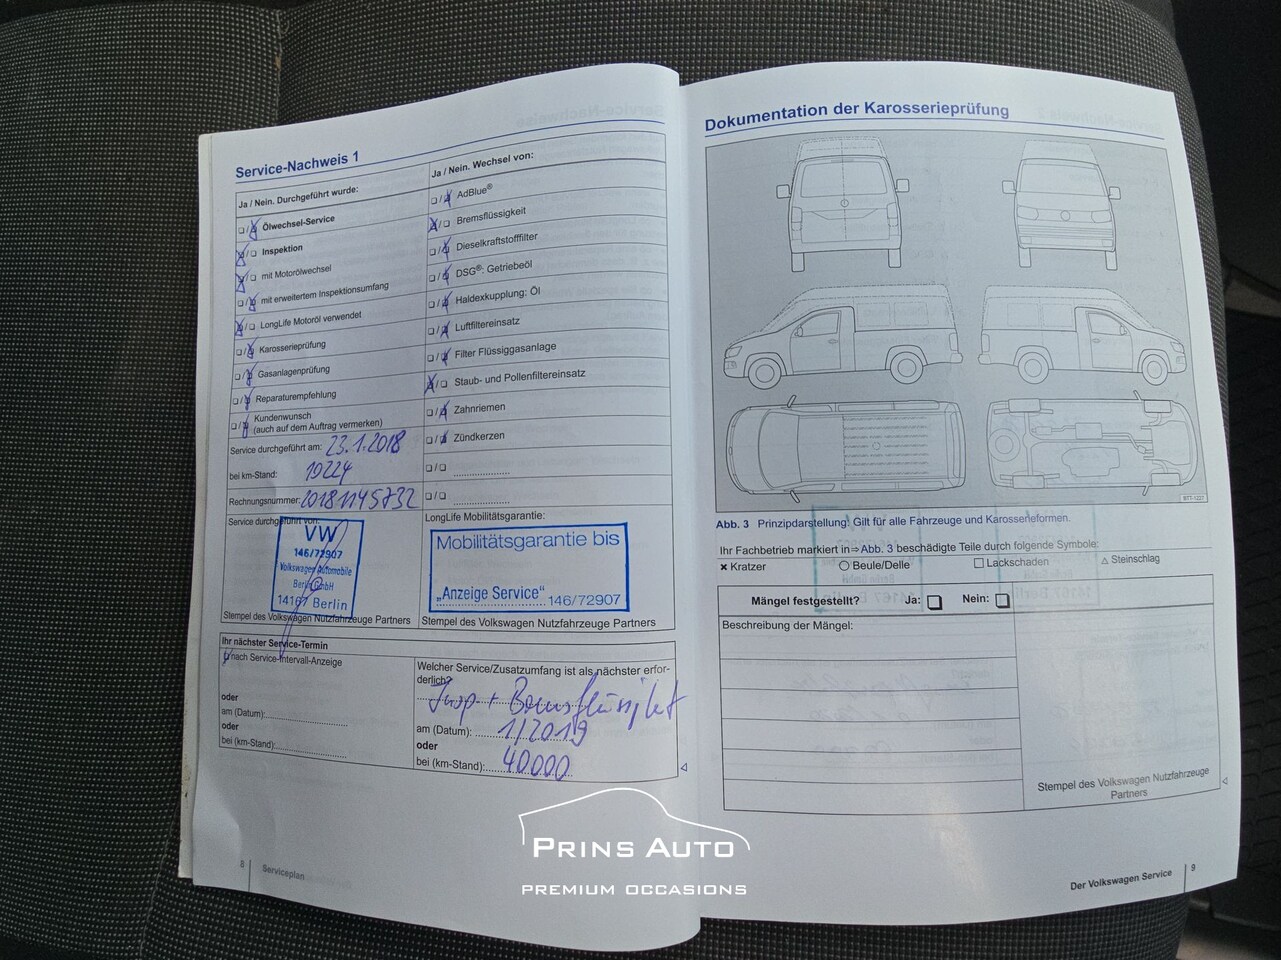 Service-Nachweis 1
Ja / Nein. Durchgeführt wurde:
Ölwechsel-Service
Inspektion
mit Motorölwechsel
mit erweitertem Inspektionsumfang
LongLife Motoröl verwendet
Karosserieprüfung
Gasanlagenprüfung
Reparaturempfehlung
Kundenwunsch
(auch auf dem Auftrag vermerken)
Service durchgeführt am: 23.1.2018
bei km-Stand: 19224
Rechnungsnummer:
Service durchgeführt von:
VW
146/72907
Volkswagen Automobile
Berlin GmbH
14167 Berlin
Stempel des Volkswagen Nutzfahrzeuge Partners
Ja / Nein. Wechsel von:
AdBlue®
Bremsflüssigkeit
Dieselkraftstofffilter
DSG®: Getriebeöl
Haldexkupplung: Öl
Luftfiltereinsatz
Filter Flüssiggasanlage
Staub- und Pollenfiltereinsatz
Zahnriemen
Zündkerzen
LongLife Mobilitätsgarantie:
Mobilitätsgarantie bis
„Anzeige Service“ 146/72907
Stempel des Volkswagen Nutzfahrzeuge Partners
Ihr nächster Service-Termin
nach Service-Intervall-Anzeige
oder
am (Datum):
oder
bei (km-Stand):
Welcher Service/Zusatzumfang ist als nächster erfor-
derlich?
Insp + Bremsflüssigkeit
am (Datum): 1/2019
oder
bei (km-Stand): 40000
8 Serviceplan
Dokumentation der Karosserieprüfung
BTT-1227
Abb. 3 Prinzipdarstellung: Gilt für alle Fahrzeuge und Karosserieformen.
Ihr Fachbetrieb markiert in ⇒ Abb. 3 beschädigte Teile durch folgende Symbole:
Kratzer Beule/Delle Lackschaden Steinschlag
Mängel festgestellt? Ja: Nein:
Beschreibung der Mängel:
Stempel des Volkswagen Nutzfahrzeuge
Partners
Der Volkswagen Service 9
PRINS AUTO
PREMIUM OCCASIONS